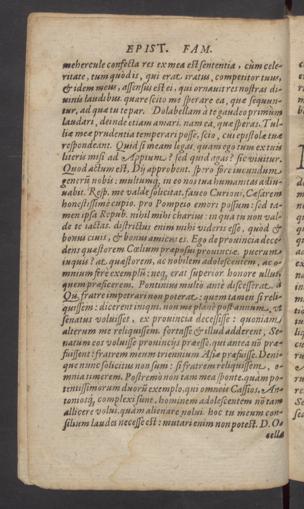 EPIST. FAM.
mehercule confecta res ex mea est sententia, cùm cele-
ritate, tum quòd is, qui erat iratus, competitor tuus,
& idem meus, assensus est ei, qui ornauit res nostras di-
uinis laudibus. quare scito me sperare ea, quæ sequun-
tur, ad quæ tu te par. Dolabellam à te gaudeo primum
laudari, deinde etiam amari. nam ea, quæ speras Tul-
liæ meæ prudentia temperari posse, scio, cui epistolæ tuæ
respondeant. Quid si meam legas, quam ego tum ex tuis
literis misi ad Appium? sed quid agas? sic viuitur.
Quod actum est, Dij approbent. spero fore iucundum
generũ nobis: multumq́; in eo nos tua humanitas adiu-
uabit. Resp. me valde solicitat. faueo Curioni, Cæsarem
honestissimè cupio. pro Pompeio emori possum: sed ta-
men ipsa Repub. nihil mihi charius: in qua tu non val-
de te iactas. districtus enim mihi videris esse, quòd &
bonus ciuis, & bonus amicus es. Ego de prouincia dece-
dens quæstorem Cælium præposui prouinciæ. puerum
inquis? at quæstorem, at nobilem adolescentem, at o-
mnium ferè exemplò: neq; erat superior honore vsus
quem præficerem. Pontinius multo antè discesserat. à
Qu. fratre impetrari non poterat: quem tamen si reli-
quissem: dicerent iniqui. non me planè post annum, vt
senatus voluisset, ex prouincia decessisse: quoniam
alterum me reliquissem. fortasse & illud adderent, Se-
natum eos voluisse prouincijs præesse, qui antea nõ præ-
fuissent: fratrem meum triennium Asiæ præfuisse. Deni-
que nunc solicitus non sum: si fratrem reliquissem, o-
mnia timerem. Postremò non tam mea sponte, quàm po-
tentissimorum duorũ exemplo, qui omneis Cassios, An-
toniosq́; complexi sunt, hominem adolescentem nõ tam
allicere volui, quàm alienare nolui. hoc tu meum con-
silium laudes necesse est: mutari enim non potest. D. O-
cella